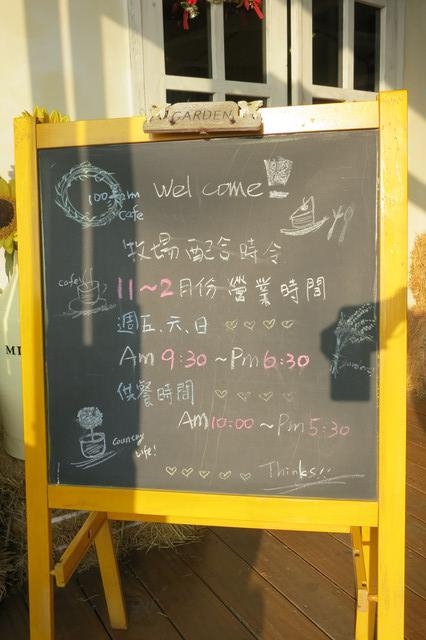 GARDEN
100 Farm Cafe
welcome
牧場配合時令
cafe
11~2月份 營業時間
週五.六.日
Am 9:30 ~ Pm 6:30
供餐時間
Am 10:00 ~ Pm 5:30
Country Life!
Thinks!!